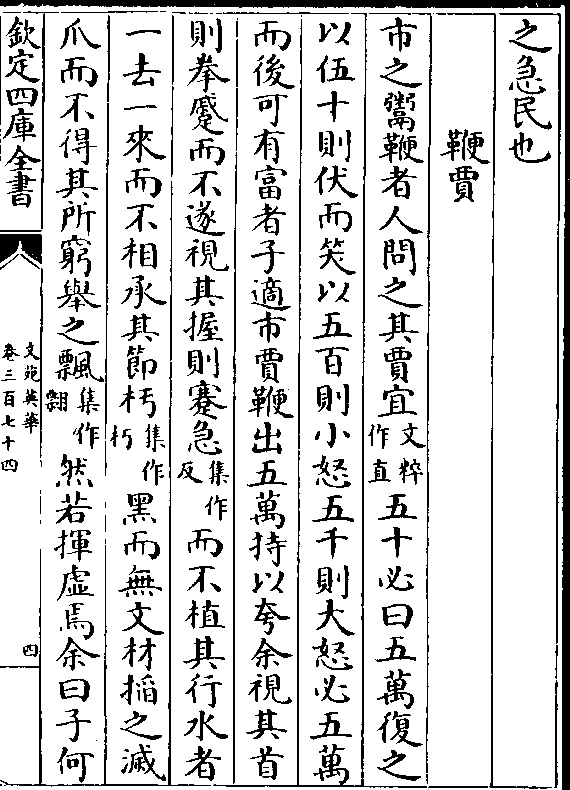 之急民也
鞭賈
市之鬻鞭者人問之其賈宜文粹作直五十必曰五萬復之
以伍十則伏而笑以五百則小怒五千則大怒必五萬
而後可有富者子適市賈鞭出五萬持以夸余視其首
則拳蹙而不遂視其握則蹇急集作反而不植其行水者
一去一來而不相承其節杇集作朽黑而無文材搯之滅
爪而不得其所窮舉之飄集作翲然若揮虚焉余曰子何
欽定四庫全書
文苑英華
卷三百七十四
四